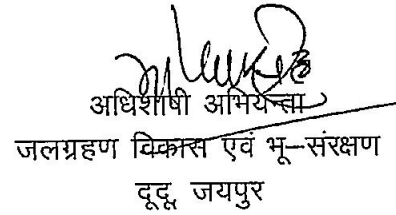 अधिशाषी अभियन्ता
जलग्रहण विकास एवं भू–संरक्षण
दूदू, जयपुर